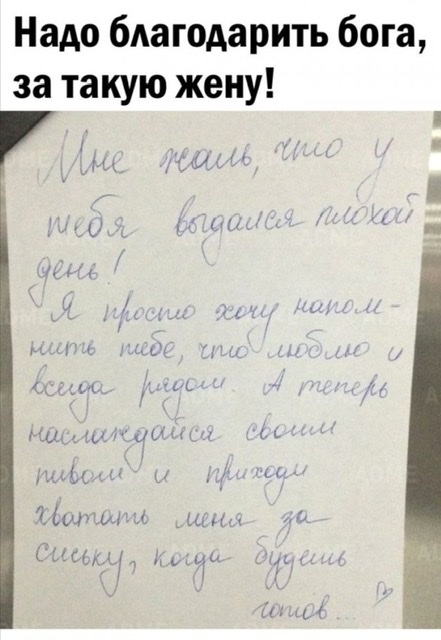 Надо благодарить бога,
за такую жену!
Мне жаль, что у
тебя выдался плохой
день!
Я просто хочу напом-
нить тебе, что люблю и
всегда рядом. А теперь
наслаждайся своим
пивом и приходи
хватать меня за
сиську, когда будешь
готов...